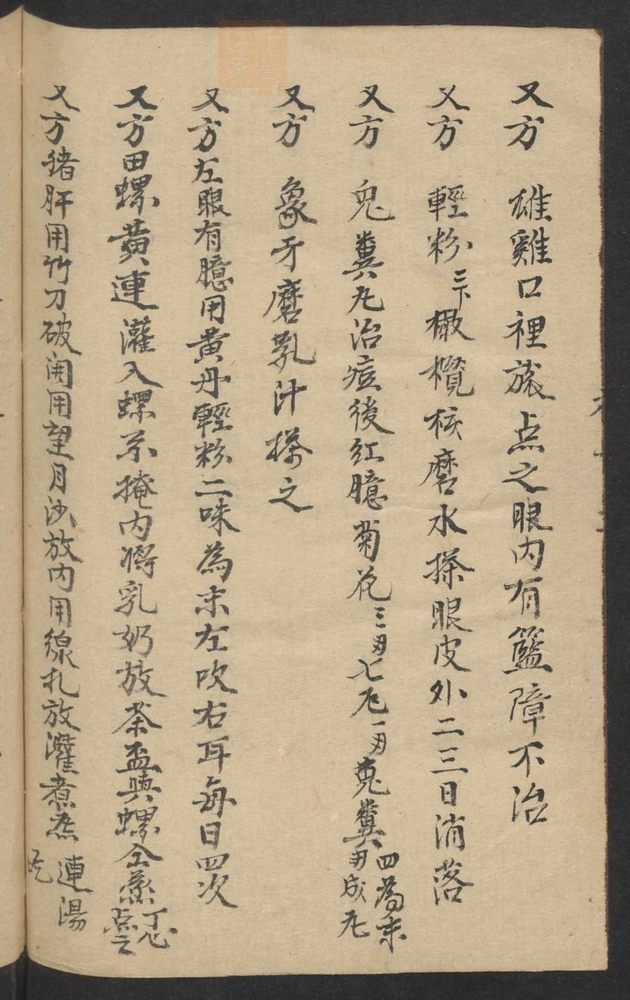 又方 雄雞口裡涎点之眼内有籃障不治
又方 輕粉三下橄欖核磨水搽眼皮外二三日消落
又方 兎糞丸治痘後紅臆菊花三匁七厄一匁兎糞四匁為末成丸
又方 象牙磨乳汁搽之
又方左眼有臆用黄丹輕粉二味為末左吹右耳每日四次
又方田螺黄連灌入螺 掩内將乳奶放茶盃與螺仝蒸 点之
又方猪肝用竹刀破開用望月沙放内用線扎放灌煮蒸連湯吃